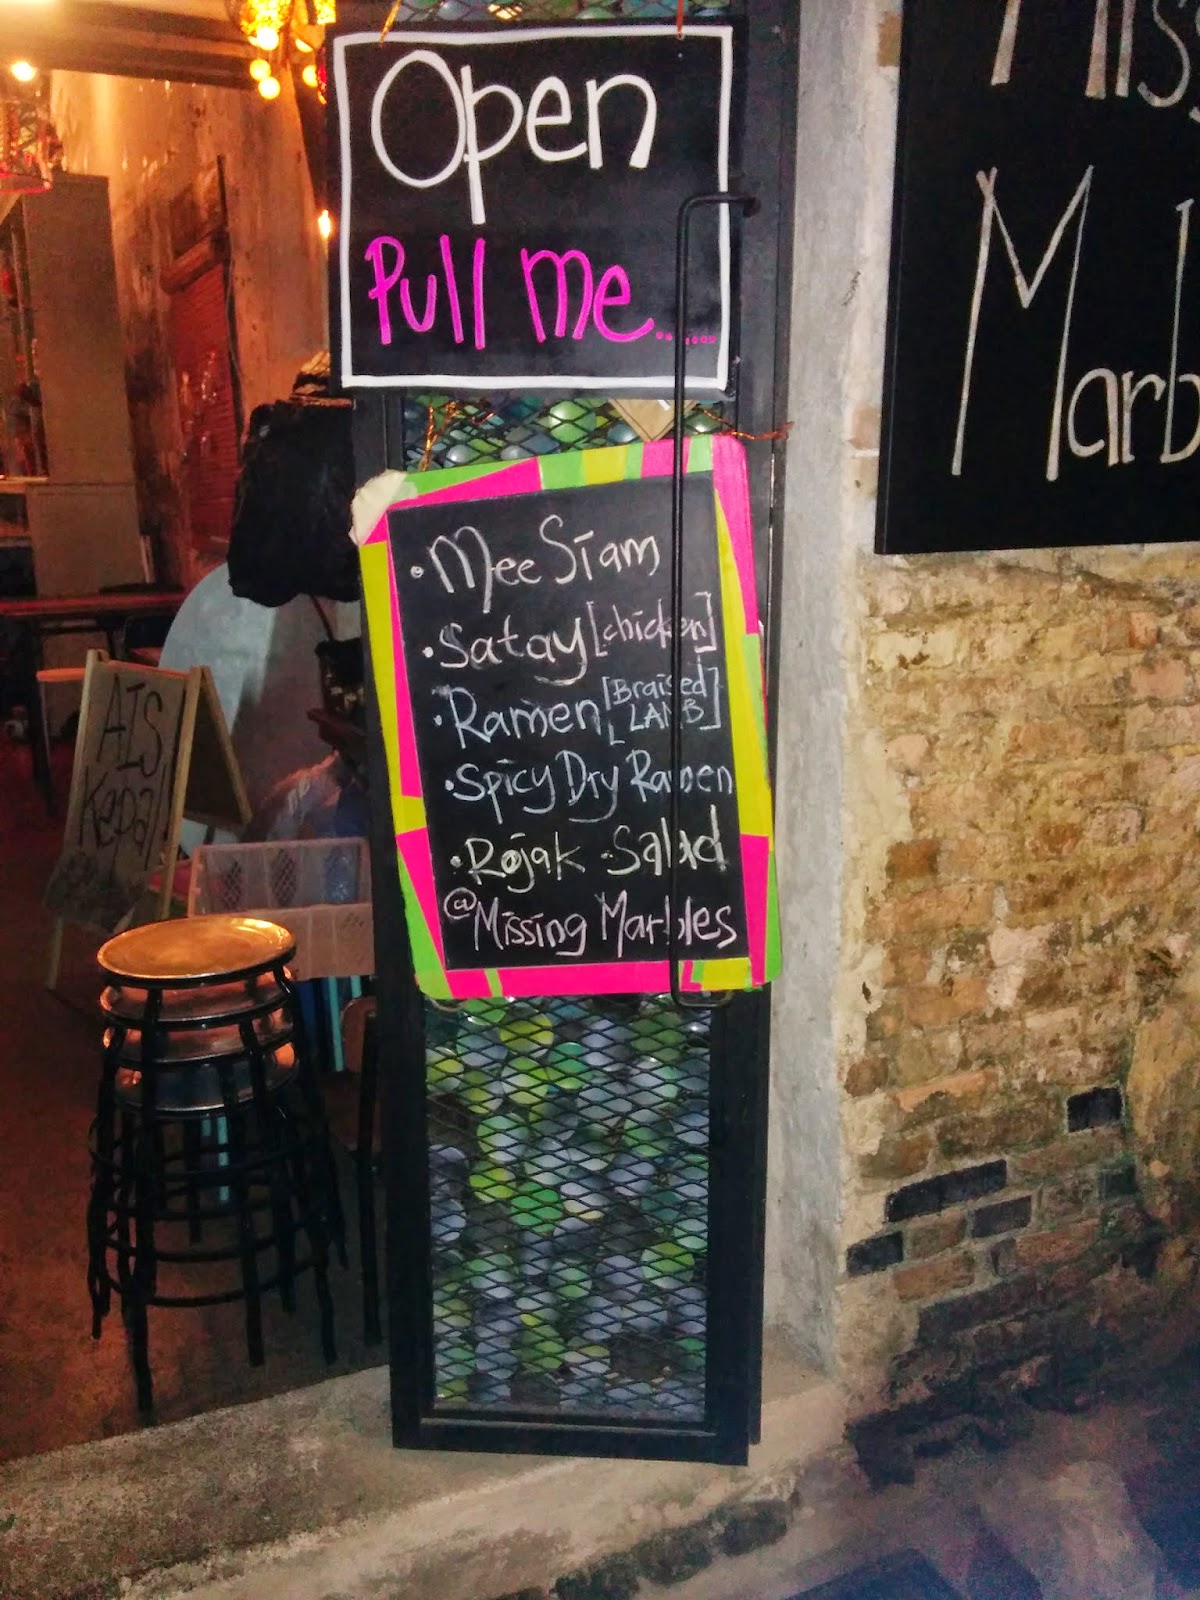 Open
Pull me.......
• Mee Siam
• Satay [chicken]
• Ramen [Braised LAMB]
• Spicy Dry Ramen
• Rojak Salad
@ Missing Marbles
AIS
Kepal!
Miss
Marb